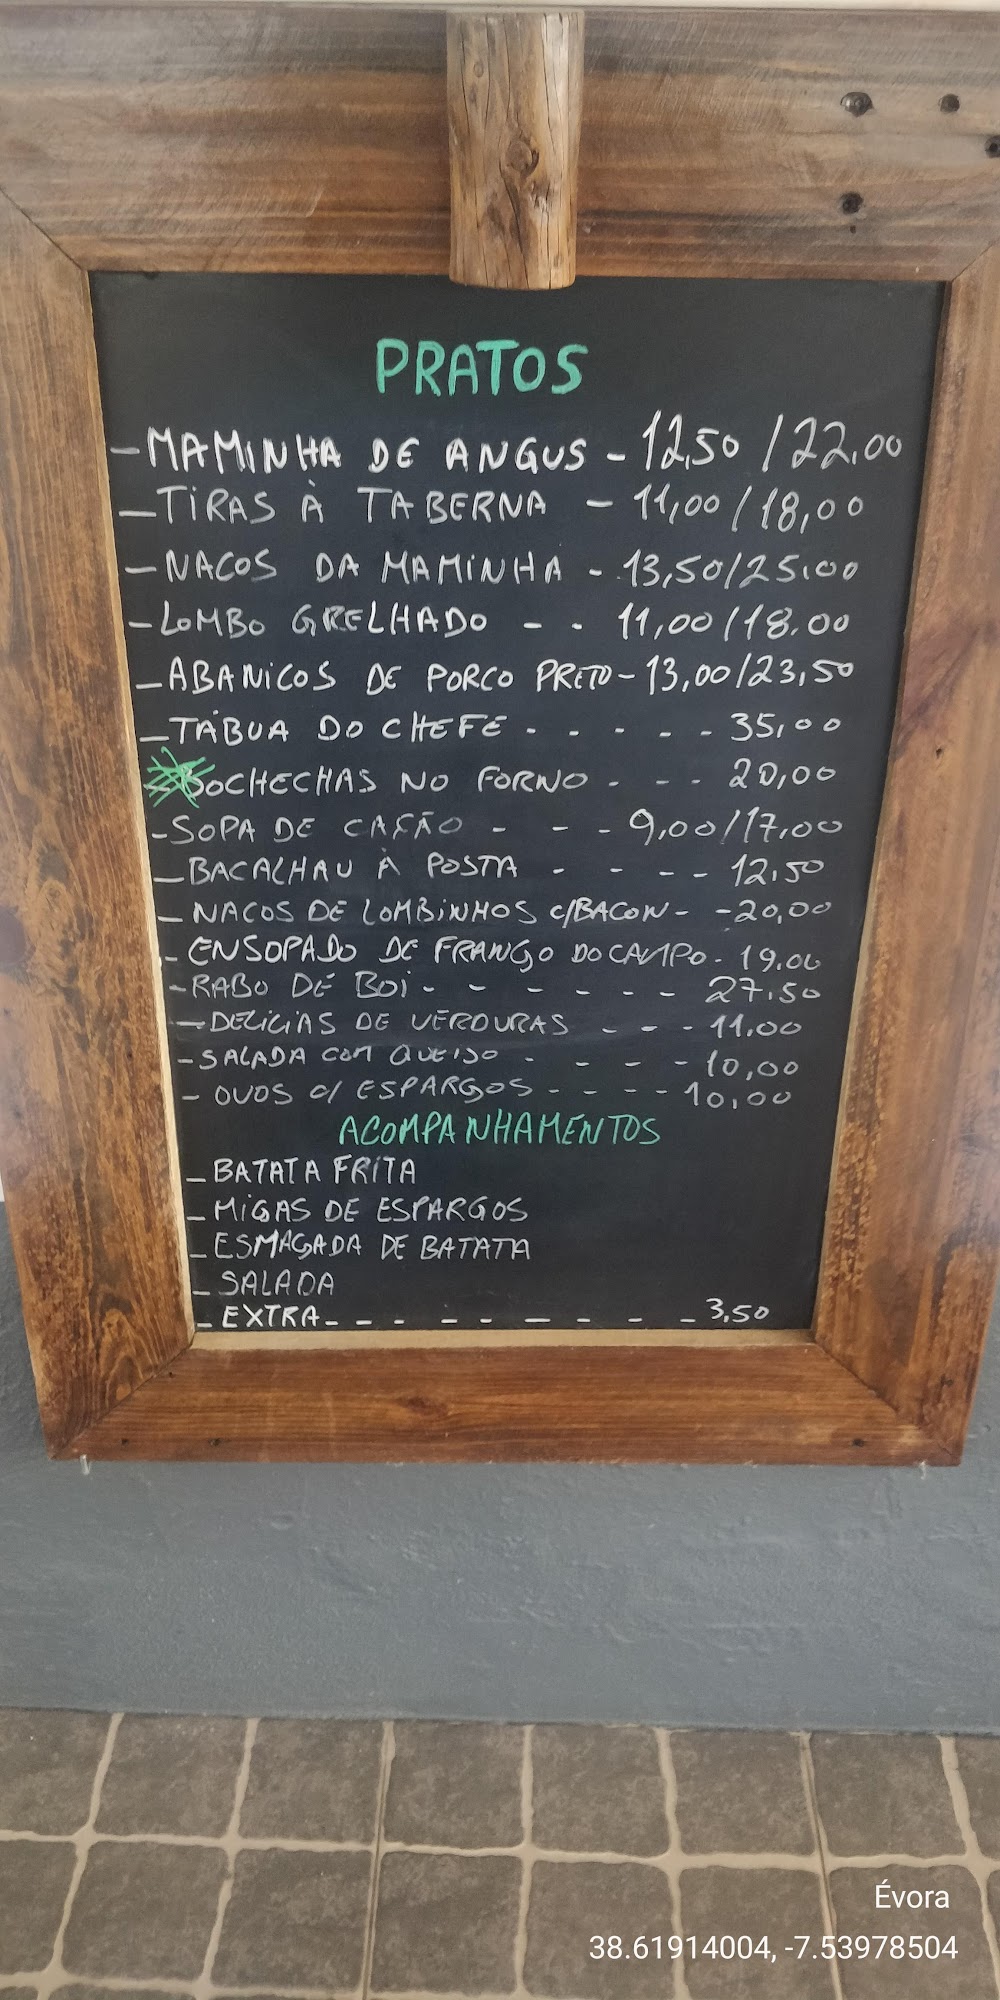 PRATOS
- MAMINHA DE ANGUS - 12,50 / 22,00
- TIRAS À TABERNA - 11,00 / 18,00
- NACOS DA MAMINHA - 13,50/25,00
- LOMBO GRELHADO - - 11,00/18.00
- ABANICOS DE PORCO PRETO - 13,00/23,50
- TÁBUA DO CHEFE - - - - - 35,00
BOCHECHAS NO FORNO - - - 20,00
- SOPA DE CAÇÃO - - - 9,00/17,00
- BACALHAU À POSTA - - - - 12,50
- NACOS DE LOMBINHOS C/BACON - - 20,00
- ENSOPADO DE FRANGO DO CAMPO - 19.00
- RABO DE BOI - - - - - - - 27.50
- DELICIAS DE VERDURAS - - - 11.00
- SALADA COM QUEIJO - - - - 10,00
- OVOS C/ ESPARGOS - - - - - 10,00
ACOMPANHAMENTOS
- BATATA FRITA
- MIGAS DE ESPARGOS
- ESMAGADA DE BATATA
- SALADA
- EXTRA - - - - - - - - - 3,50
Évora
38.61914004, -7.53978504